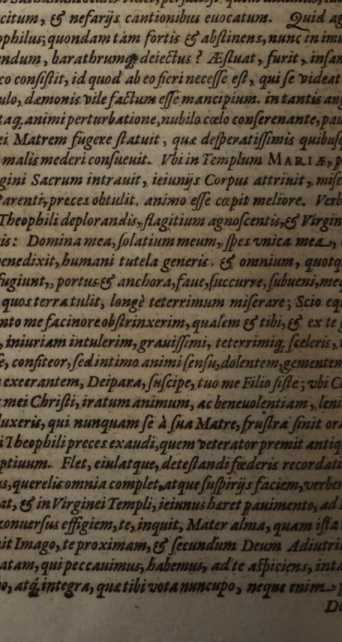 citum, & nefarijs cantionibus euocatum. Quid ag
ophilus, quondam tàm fortis & abstinens, nunc in imu
endum, barathrumq; deiectus? Æstuat, furit, insan
co consistit, id quod ab eo fieri necesse est, qui se videat
ulo, dæmonis vile factum esse mancipium. in tantis ang
taq, animi perturbatione, nubilo cœlo conserenante, pau
ei Matrem fugere statuit, quæ desperatissimis quibus
malis mederi consueuit. Vbi in Templum MARIÆ, p
gini Sacrum intrauit, ieiunijs Corpus attriuit, misc
Parenti, preces obtulit. animo esse cœpit meliore. Verb
Theophili deplorandis, flagitium agnoscentis, & Virgin
is: Domina mea, solatium meum, spes vnica mea,
benedixit, humani tutela generis. & omnium, quotq
fugiunt, portus & anchora, faue, succurre, subueni, me
quos terra tulit, longè teterrimum miserare; Scio eq
nto me facinore obstrinxerim, qualem & tibi, & ex te g
, iniuriam intulerim, grauissimi, teterrimiq, sceleris,
e, confiteor, sed intimo animi sensu, dolentem, gementem
exerantem, Deipara, suscipe, tuo me Filio siste; vbi C
mei Christi, iratum animum, ac beneuolentiam, len
luxeris, qui nunquam se à sua Matre, frustra sinit ora
i Theophili preces exaudi, quem veterator premit antiq
ptiuum. Flet, eiulatque, detestandi fœderis recordat
s, querelis omnia complet, atque suspirijs faciem, verber
at, & in Virginei Templi, ieiunus hæret pauimento, ad
conuersus effigiem, te, inquit, Mater alma, quam ista
it Imago, te proximam, & secundum Deum Adiutri
atam, qui peccauimus, habemus, ad te aspiciens, inta
o, atq, integra, quæ tibi vota nuncupo, neque enim p